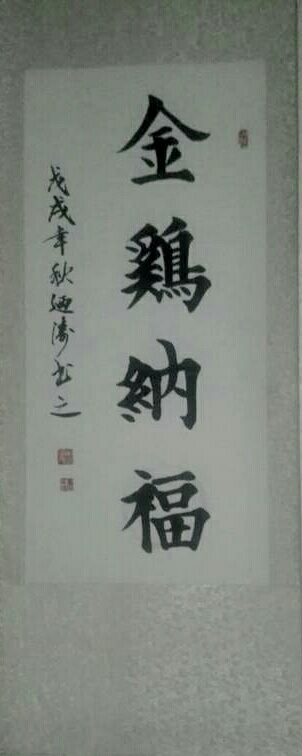 金鷄納福
戊戌年秋迺濤书之